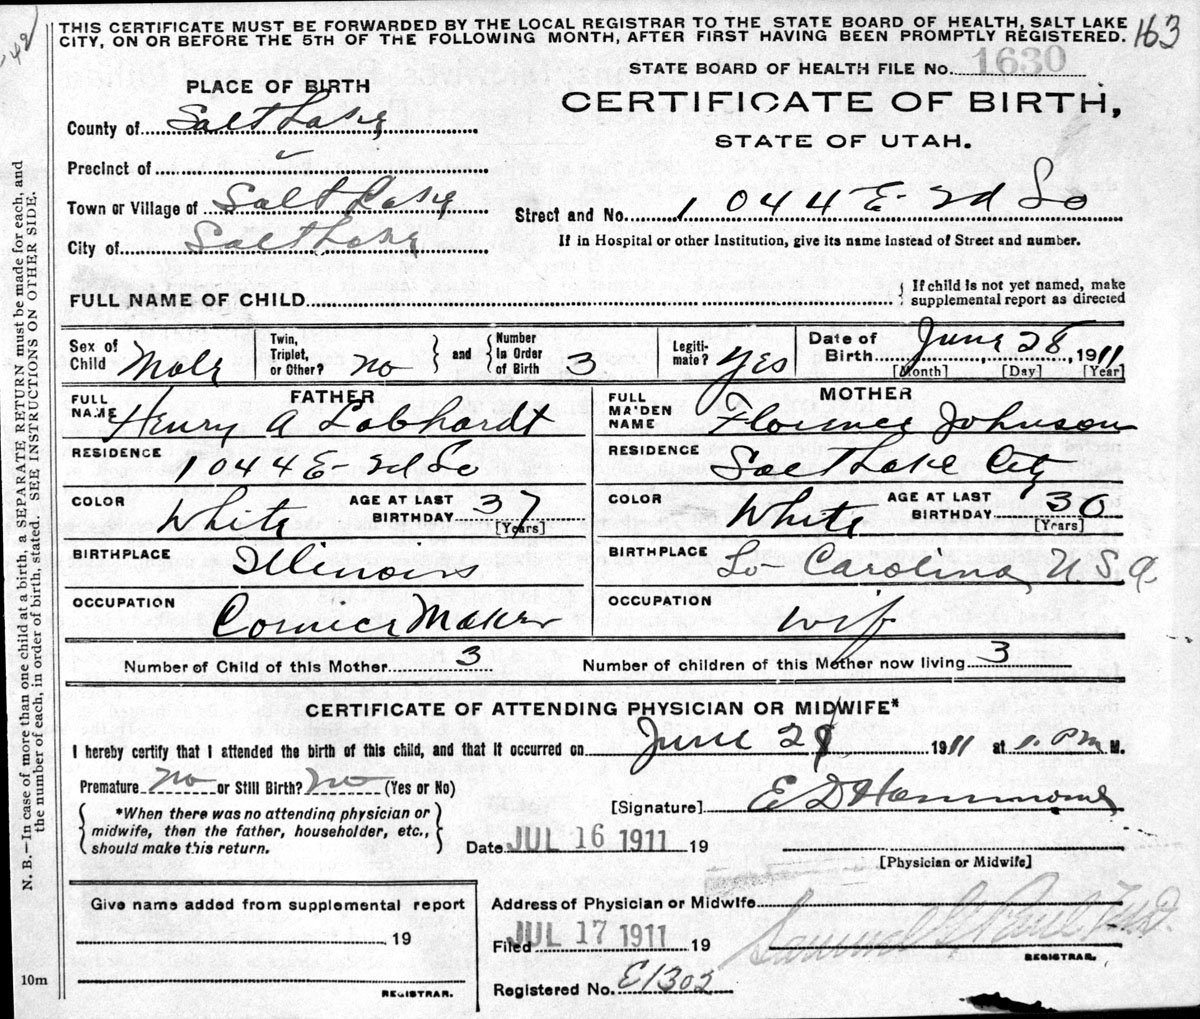 THIS CERTIFICATE MUST BE FORWARDED BY THE LOCAL REGISTRAR TO THE STATE BOARD OF HEALTH, SALT LAKE
CITY, ON OR BEFORE THE 5TH OF THE FOLLOWING MONTH, AFTER FIRST HAVING BEEN PROMPTLY REGISTERED. 163
STATE BOARD OF HEALTH FILE No. 1630
PLACE OF BIRTH
CERTIFICATE OF BIRTH,
STATE OF UTAH.
County of Salt Lake
Precinct of
Town or Village of Salt Lake
Street and No. 1044 E- 2d So
City of Salt Lake
If in Hospital or other Institution, give its name instead of Street and number.
FULL NAME OF CHILD
If child is not yet named, make
supplemental report as directed
Sex of Child Male
Twin, Triplet, or Other? no
and
Number in Order of Birth 3
Legiti-mate? Yes
Date of Birth June 28, 1911
[Month] [Day] [Year]
FATHER
FULL NAME Henry A Lobhardt
MOTHER
FULL MAIDEN NAME Florence Johnson
RESIDENCE 1044 E- 2d So
RESIDENCE Salt Lake City
COLOR White
AGE AT LAST BIRTHDAY 37 [Years]
COLOR White
AGE AT LAST BIRTHDAY 30 [Years]
BIRTHPLACE Illinois
BIRTHPLACE So- Carolina U.S.A.
OCCUPATION Cornice Maker
OCCUPATION wif
Number of Child of this Mother 3
Number of children of this Mother now living 3
CERTIFICATE OF ATTENDING PHYSICIAN OR MIDWIFE*
I hereby certify that I attended the birth of this child, and that it occurred on June 28 1911 at 1. PM M.
Premature no or Still Birth? no (Yes or No)
[Signature] E D Hammond
*When there was no attending physician or
midwife, then the father, householder, etc.,
should make this return.
Date JUL 16 1911 19
[Physician or Midwife]
Give name added from supplemental report
19
REGISTRAR.
Address of Physician or Midwife
Filed JUL 17 1911 19
Samuel G Paul
REGISTRAR.
Registered No. E1302
10m
N. B.—In case of more than one child at a birth, a SEPARATE RETURN must be made for each, and
the number of each, in order of birth, stated. SEE INSTRUCTIONS ON OTHER SIDE.